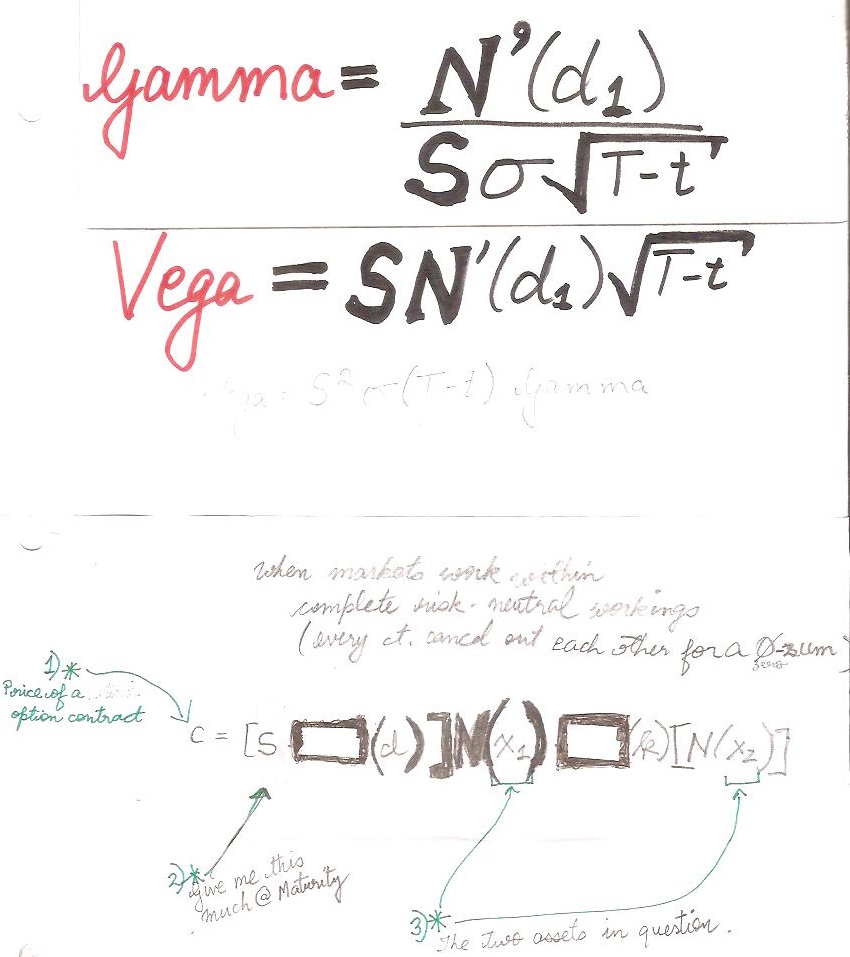 Gamma = N'(d1)
Sσ√T-t
Vega = SN'(d1)√T-t
S² σ(T-t) Gamma
When markets work within
complete risk-neutral workings
(every ct. cancel out each other for a Ø-sum)
zero
1)*
Price of a
option contract
C = [S (d)]N(x1) (k)[N(x2)]
2)*
Give me this
much @ Maturity
3)*
The two assets in question.